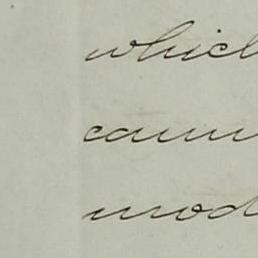 which
cann
mod